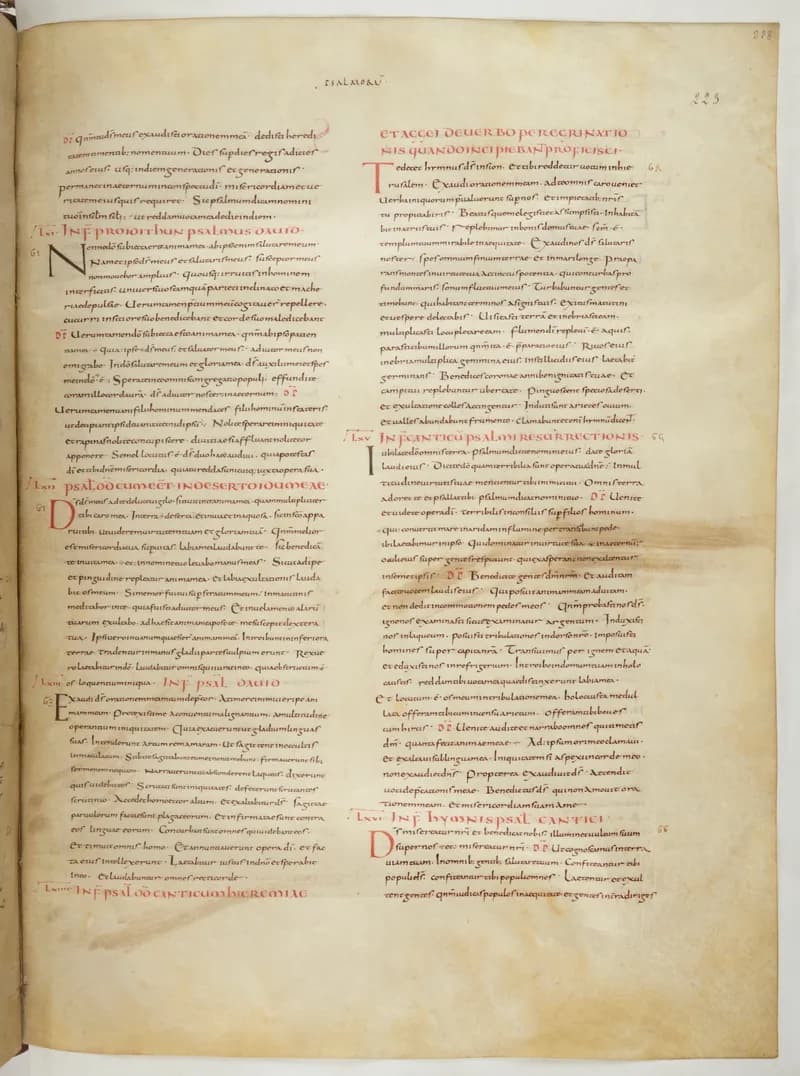 PSALMORU
223
Ds meus exaudisti orationem meam dedisti heredi
tatem timentibus nomen tuum Dies sup dies regis adicies
annos eius usq; in diem generationis et generationis
permanet in aeternum in conspectu di misericordiam et ue
ritatem eius quis requiret Sic psalmum dicam nomini
tuo in sclm scli ut reddam uota mea de die in diem
INF PRO IDITHUN PSALMUS DAUID
61 Nonne dō subiecta erit anima mea ab ipso enim salutare meum
Nam et ipse ds meus et salutaris meus susceptor meus
non mouebor amplius Quousq; irruitis in hominem
interficitis uniuersi uos tamquā parieti inclinato et mache
riae depulsae Uerumtamen pretium meū cogitauer repellere
cucurri in siti ore suo benedicebant et corde suo maledicebant
Uerumtamen dō subiecta esto anima mea qnm ab ipso patien
tia mea Quia ipse ds meus et saluator meus adiutor meus non
emigrabo In dō salutare meum et gloria mea ds auxilii mei et spes
mea in dō ē Sperate in eo omnis congregatio populi effundite
coram illo corda urā ds adiutor noster in aeternum
Uerumtamen uani filii hominum mendaces filii hominū in stateris
ut decipiant ipsi de uanitate in id ipsū Nolite sperare in iniquitate
et rapinas nolite concupiscere diuitiae si affluant nolite cor
apponere Semel locutus ē ds duo haec audiui quia potestas
di ē et tibi dne misericordia quia tu reddes unicuiq; iuxta opera sua
Lxii PSAL DD CUM EET IN DESERTO IDUMEAE
Ds ds meus ad te de luce uigilo sitiuit in te anima mea quam multipliciter
tibi caro mea In terra deserta et inuia et inaquosa sic in scō appa
rui tibi ut uiderem uirtutem tuam et gloriam tuā Qnm melior
est misericordia tua sup uitas labia mea laudabunt te Sic benedicā
te in uita mea et in nomine tuo leuabo manus meas Sicut adipe
et pinguidine repleatur anima mea et labiis exultationis lauda
bit os meum Si memor fui tui sup stratum meum in matutinis
meditabor in te quia fuisti adiutor meus Et in uelamento alarū
tuarum exultabo adhaesit anima mea post te me suscepit dextera
tua Ipsi uero in uanum quaesier animam meā Introibunt in inferiora
terrae tradentur in manus gladii partes uulpium erunt Rex ue
ro laetabitur in dō laudabitur omnis qui iurat in eo quia obstructum ē
os loquentium iniqua INF PSAL DAUID
Exaudi ds orationem meam cum deprecor A timore inimici eripe ani
mam meam Protexisti me a conuentu malignantium a multitudine
operantium iniquitatem Quia exacuerunt ut gladium linguas
suas Intenderunt arcum rem amaram Ut sagittent in occultis
inmaculatum Subito sagittabunt eum et non timebunt firmauerunt sibi
sermonem nequam Narrauerunt ut absconderent laqueos dixerunt
quis uidebit eos Scrutati sunt iniquitates defecerunt scrutantes
scrutinio Accedet homo et cor altum Et exaltabitur ds sagittae
paruulorum factae sunt plagae eorum Et infirmatae sunt contra
eos linguae eorum Conturbati sunt omnes qui uidebant eos
et timuit omnis homo Et annuntiauerunt opera di et fac
ta eius intellexerunt Laetabitur iustus in dnō et sperabit
in eo Et laudabuntur omnes recti corde
INF PSAL DD CANTICUM HIEREMIAE
ET AGGEI DE UERBO PEREGRINATIO
NIS QUANDO INCIPIEBANT PROFICISCI
Te decet hymnus ds in sion Et tibi reddetur uotum in hie
rusalem Exaudi orationem meam ad te omnis caro ueniet
Uerba iniquorum praeualuerunt sup nos Et impietatib; nris
tu propitiaberis Beatus quem elegisti et assumpsisti Inhabita
bit in atriis tuis Replebimur in bonis domus tuae scm ē
templum tuum mirabile in aequitate Exaudi nos ds salutaris
noster spes omnium finium terrae et in mari longe Praepa
rans montes in uirtute tua accinctus potentia qui conturbas pro
fundum maris sonum fluctuum eius Turbabuntur gentes et
timebunt qui habitant terminos a signis tuis Exitus matutini
et uespere delectabis Uisitasti terrā et inebriasti eam
multiplicasti locupletare eam Flumen di repletū ē aquis
parasti cibum illorum qnm ita ē pparatio eius Riuos eius
inebria multiplica genimina eius in stillicidiis eius laetabit
germinans Benedices coronae anni benignitatis tuae Et
campi tui replebuntur ubertate Pinguescent speciosa deserti
et exultatione colles accingentur Induti sunt arietes ouium
et ualles abundabunt frumento clamabunt etenī hymnū dicent
Lxv INF CANTICŪ PSALMI RESURRECTIONIS
Iubilate dō omnis terra Psalmum dicite nomini eius date gloriā
laudi eius Dicite dō quam terribilia sunt opera tua dne In mul
titudine uirtutis tuae mentientur tibi inimici tui Omnis terra
adoret te et psallat tibi psalmum dicat nomini tuo Uenite
et uidete opera di terribilis in consiliis sup filios hominum
Qui conuertit mare in aridam in flumine pertransibunt pede
ibi laetabimur in ipso Qui dominatur in uirtute sua in aeternū
oculi eius super gentes respiciunt qui exasperant non exaltentur
in semet ipsis Benedicite gentes dm nrm Et auditam
facite uocem laudis eius Qui posuit animam meam ad uitam
et non dedit in commotionem pedes meos Qnm probasti nos ds
igne nos examinasti sicut examinatur argentum Induxisti
nos in laqueum posuisti tribulationes in dorso nro imposuisti
homines super capita nra Transiuimus per ignem et aquā
et eduxisti nos in refrigerium Introibo in domum tuam in holo
caustis reddam tibi uota mea quae distinxerunt labia mea
Et locutum ē os meum in tribulatione mea holocausta medul
lata offeram tibi cum incensu arietum offeram tibi boues
cum hircis Uenite audite et narrabo omnes qui timetis
dm quanta fecit animae meae Ad ipsum ore meo clamaui
et exaltaui sub lingua mea Iniquitatem si aspexi in corde meo
non exaudiet dns Propterea exaudiuit ds Attendit
uoci deprecationis meae Benedictus ds qui non amouit ora
tionem meam Et misericordiam suam a me
Lxvi INF HYMNIS PSAL CANTICI
Ds misereatur nri et benedicat nobis illuminet uultum suum
super nos et misereatur nri Ut cognoscamus in terra
uiam tuam In omnib; gentib; salutare tuum Confiteantur tibi
populi ds confiteantur tibi populi omnes Laetentur et exul
tent gentes qnm iudicas populos in aequitate et gentes in terra diriges